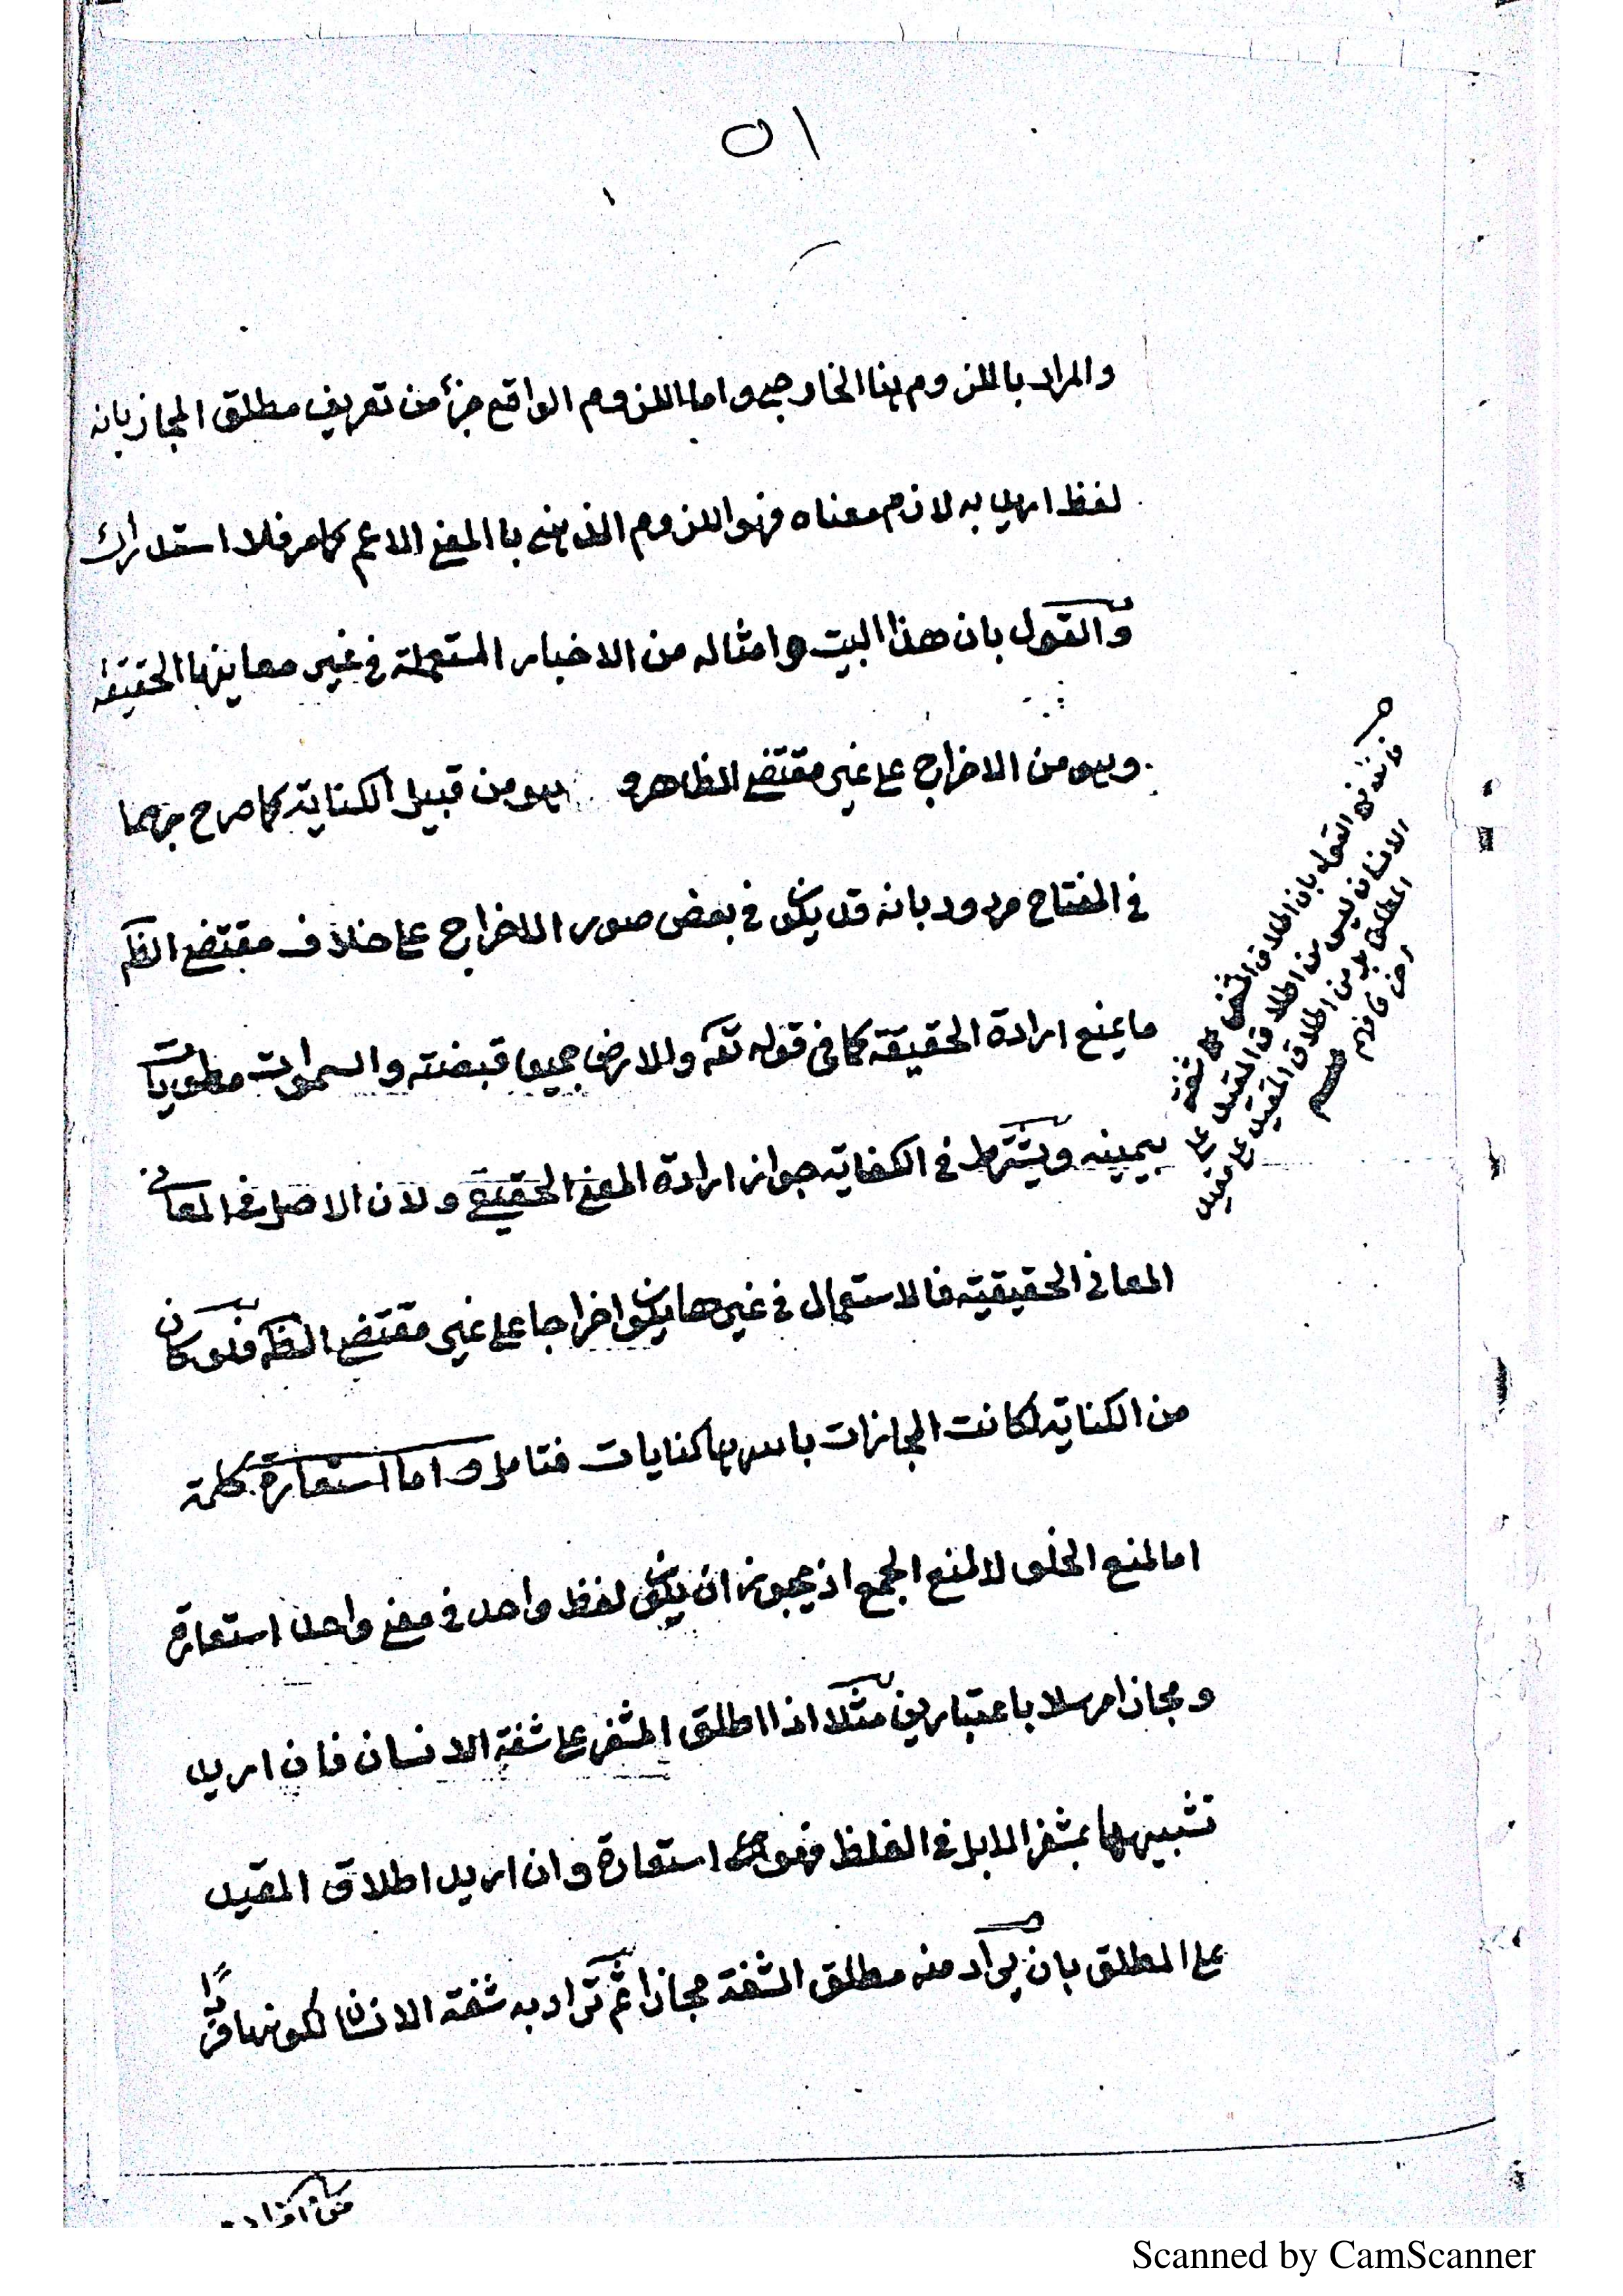 ٥١
والمراد باللزوم هنا الخارجي واما اللزوم الواقع جزأ من تعريف مطلق المجاز بانه
لفظ اريد به لازم معناه فهو اللزوم الذهني با المعنى الاعم كما مر فلا استدراك
والقول بان هذا البيت وامثاله من الاخبار المستعملة في غير معاينها الحقيقة
وهو من الاخراج على غير مقتضى الظاهر و هو من قبيل الكناية كما صرح بهما
في المفتاح مردود بانه قد يكون في بعض صور الاخراج على خلاف مقتضى الظ
ما يمنع ارادة الحقيقة كما في قوله تعه والارض جميعا قبضته والسموات مطويات
بيمينه ويشترط في الكفاية جواز ارادة المعنى الحقيقي ولان الاصل في المعانى
المعانى الحقيقية فالاستعمال في غيرها يكون اخراجا على غير مقتضى الظ فلو كان
من الكناية لكانت المجازات باسرها كنايات فتامل واما استعارة كلمة
اما لمنع الخلو لا لمنع الجمع اذ يجوز ان يكون لفظ واحد في معنى واحد استعارة
ومجازا مرسلا باعتبارين مثلا اذا اطلق المشفر على شفة الانسان فان اريد
تشبيهها بمشفر الابل في الغلظ فهو استعارة وان اريد اطلاق المقيد
على المطلق بان يراد منه مطلق الشفة مجازا ثم تراد به شفة الانسان لكونها فردا
فاندفع القول بان اطلاق المشفر على شفة
الانسان ليس من اطلاق المقيد على
المطلق بل من اطلاق المقيد على مقيد
فافهم
من افراد
Scanned by CamScanner